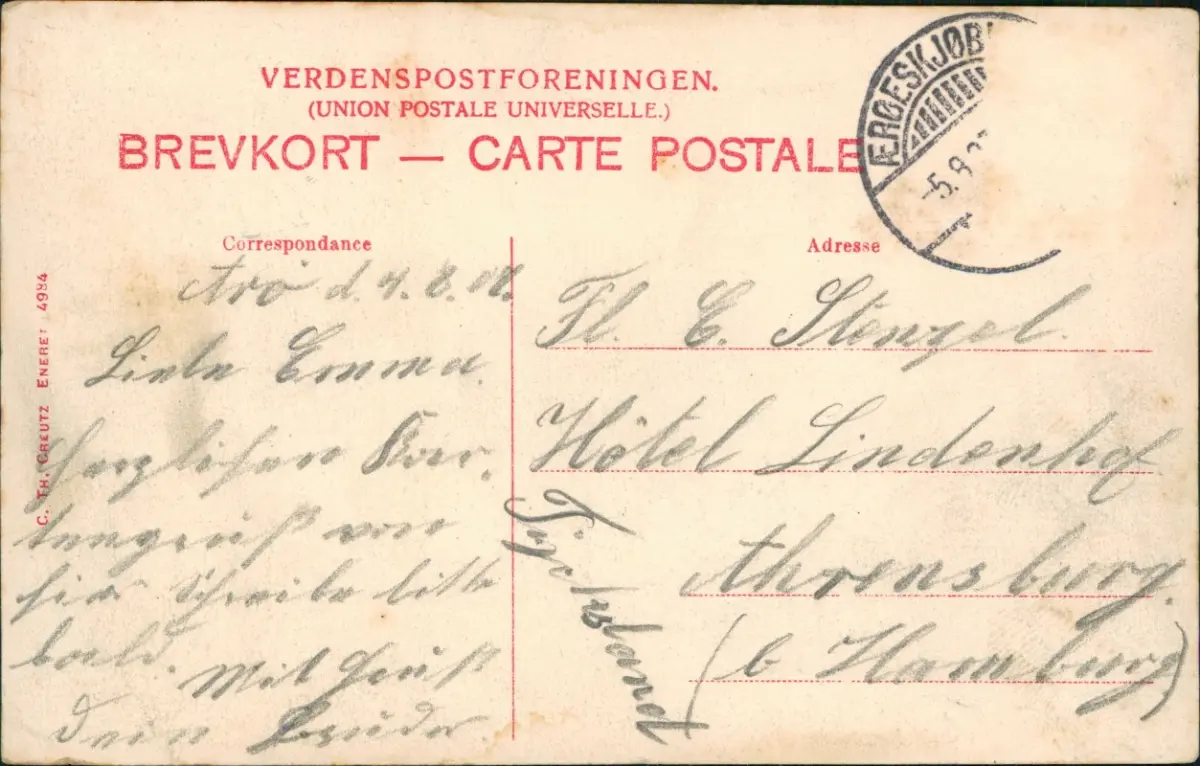 VERDENSPOSTFORENINGEN.
(UNION POSTALE UNIVERSELLE.)
BREVKORT — CARTE POSTALE
ÆRØESKJØB
-5.8
Correspondance
Adresse
C. TH. CREUTZ ENERET 4984
Arö d. 4. 8. 08.
Liebe Emma
herzlichen Kar-
tengruß von
hier Schreibe bitte
bald.
Mit Gruß
dein Bruder.
Fl. E. Stenzel.
Hôtel Lindenhof
Ahrensburg.
(b Hamburg)